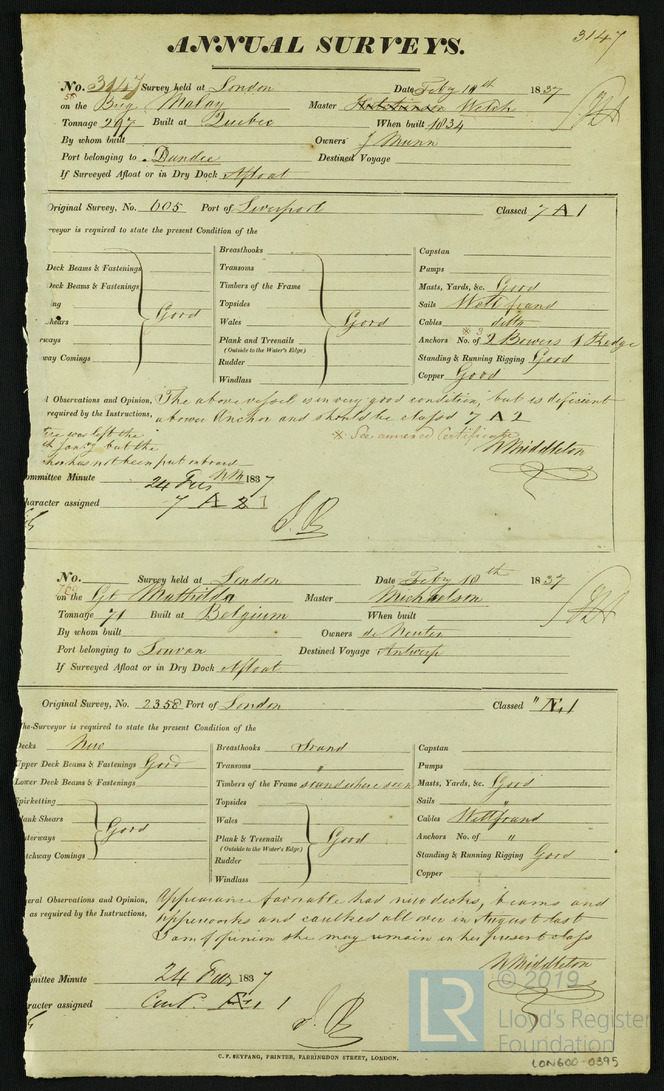 3147
ANNUAL SURVEYS.
No. 3147 Survey held at London Date Feby 10th 1837
on the Brig Malay Master Welch
Tonnage 297 Built at Quebec When built 1834
By whom built Owners J Munn
Port belonging to Dundee Destined Voyage
If Surveyed Afloat or in Dry Dock Afloat
Original Survey, No. 605 Port of Liverpool Classed 7 A 1
rveyor is required to state the present Condition of the
Deck Beams & Fastenings
Deck Beams & Fastenings
ing
Shears
rways
way Comings
Good
Breasthooks
Transoms
Timbers of the Frame
Topsides
Wales
Plank and Treenails
(Outside to the Water's Edge)
Rudder
Windlass
Good
Capstan
Pumps
Masts, Yards, &c. Good
Sails Well found
Cables ditto
※ 3
Anchors No. of 2 Bowers 1 Kedge
Standing & Running Rigging Good
Copper Good
l Observations and Opinion, The above vessel is in very good condition, but is deficient
required by the Instructions, a bower Anchor and should be classd 7 A 2
※ See annexed Certificate
was left the
but the
has not been put onboard
W Middleton
ommittee Minute 24 Feb 1837
haracter assigned 7 A 2 1
No. Survey held at London Date Feby 10th 1837
on the Gt Mathilda Master Michaelson
Tonnage 71 Built at Belgium When built
By whom built Owners de Neuter
Port belonging to Louvan Destined Voyage Antwerp
If Surveyed Afloat or in Dry Dock Afloat
Original Survey, No. 2358 Port of London Classed " Æ 1
The Surveyor is required to state the present Condition of the
Decks New
Upper Deck Beams & Fastenings Good
Lower Deck Beams & Fastenings
Spirketting
lank Shears
terways
tchway Comings
Good
Breasthooks Sound
Transoms "
Timbers of the Frame sound where seen
Topsides
Wales
Plank & Treenails
(Outside to the Water's Edge)
Rudder
Windlass
Good
Capstan
Pumps
Masts, Yards, &c. Good
Sails "
Cables Well found
Anchors No. of "
Standing & Running Rigging Good
Copper
eral Observations and Opinion, Appearance favorable had new decks, beams and
as required by the Instructions, upperworks and caulked all over in August last
I am of opinion she may remain in her present class
W Middleton
mmittee Minute 24 Feb 1837
racter assigned Cont. Æ 1 1
C. F. SEYFANG, PRINTER, FARRINGDON STREET, LONDON.
© 2019
LR
Lloyd's Register
Foundation
LON600-0395